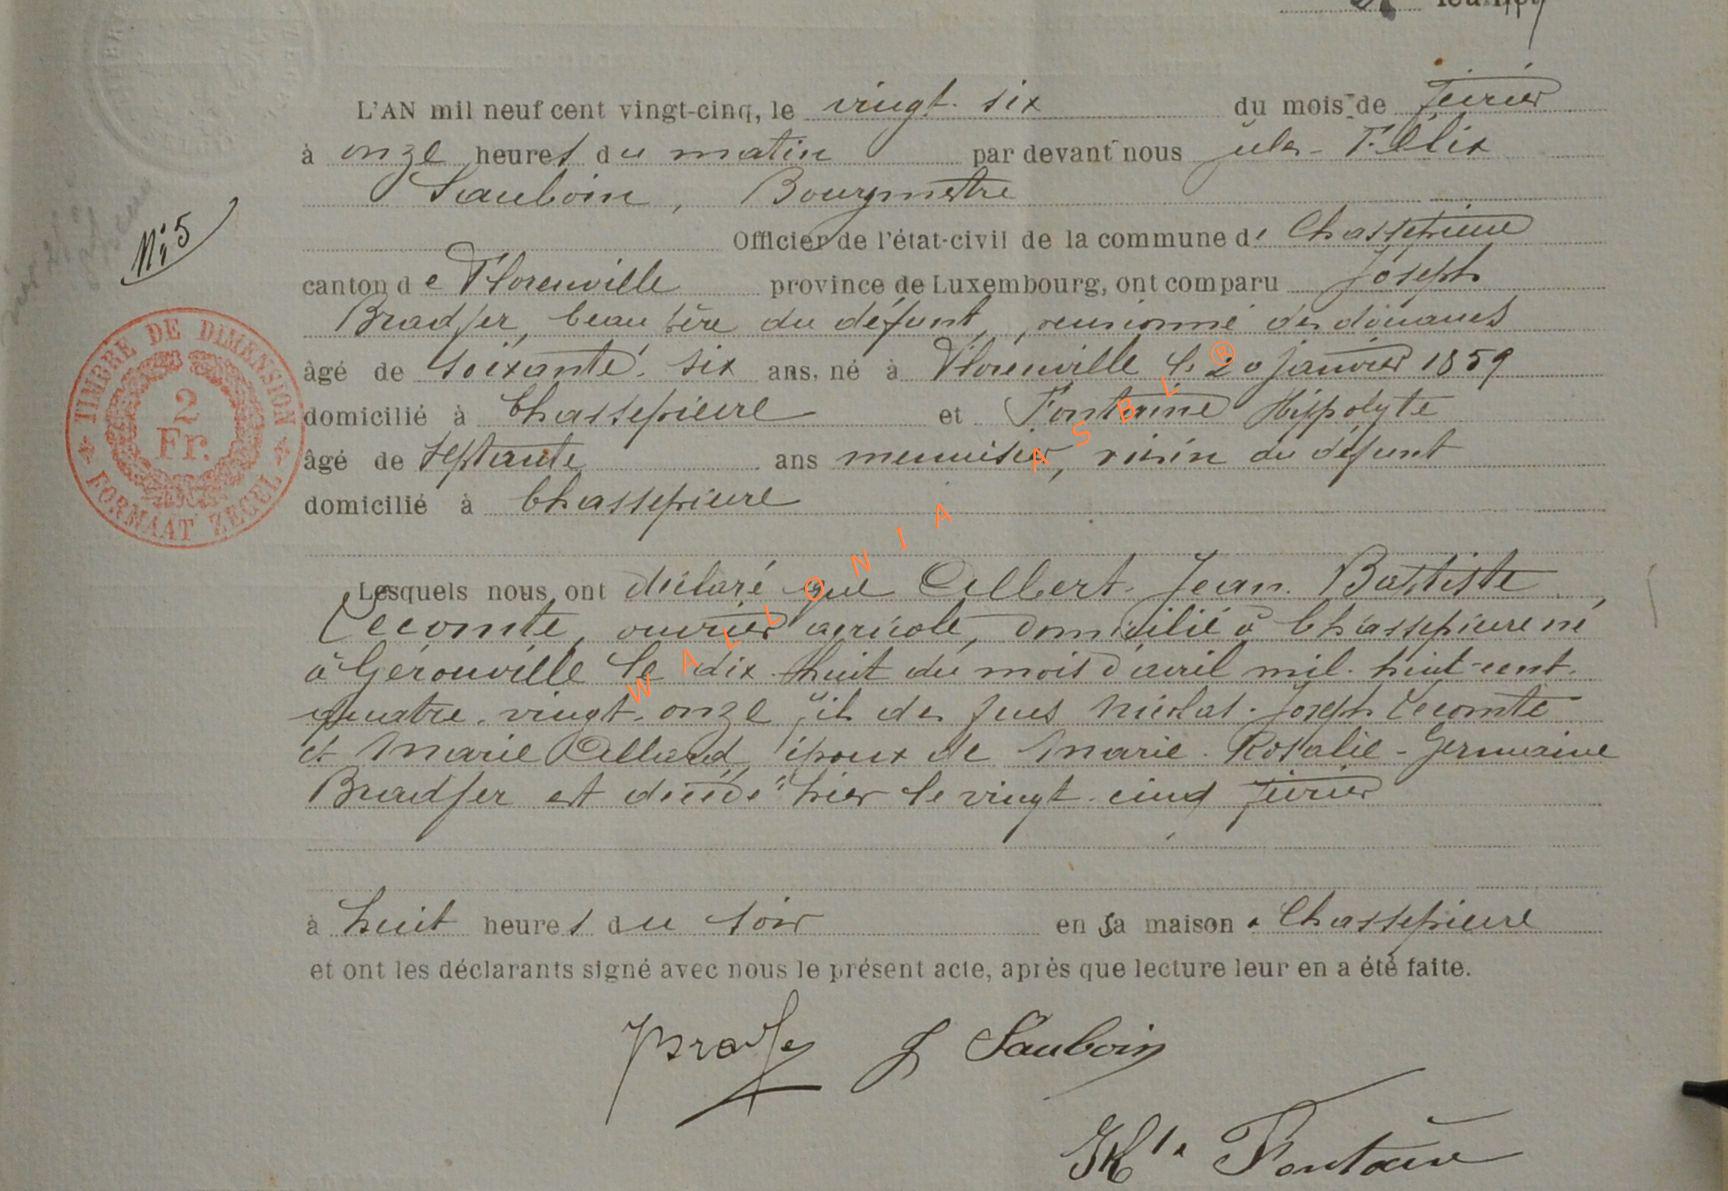 feuillet
L'AN mil neuf cent vingt-cinq, le vingt-six du mois de février
à onze heures du matin par devant nous Jules-Félix
Sauboin, Bourgmestre
N° 5
Officier de l'état-civil de la commune de Chassepierre
canton de Florenville province de Luxembourg, ont comparu Joseph
Bradfer, beau père du défunt, pensionné des douanes
âgé de soixante-six ans, né à Florenville le 20 janvier 1859
domicilié à Chassepierre et Fontaine Hippolyte
âgé de septante ans menuisier, voisin du défunt
domicilié à Chassepierre
TIMBRE DE DIMENSION
2
Fr.
FORMAAT ZEGEL
Lesquels nous ont déclaré que Albert-Jean-Baptiste
Lecomte, ouvrier agricole, domicilié à Chassepierre né
à Gérouville le dix-huit du mois d'avril mil-huit-cent-
quatre-vingt-onze fils des feus Nicolas-Joseph Lecomte
et Marie Allard, époux de Marie-Rosalie-Germaine
Bradfer est décédé hier le vingt-cinq février
à huit heures du soir en sa maison à Chassepierre
et ont les déclarants signé avec nous le présent acte, après que lecture leur en a été faite.
Bradfer J Sauboin
Hte Fontaine
WALLONIA ASBL ®